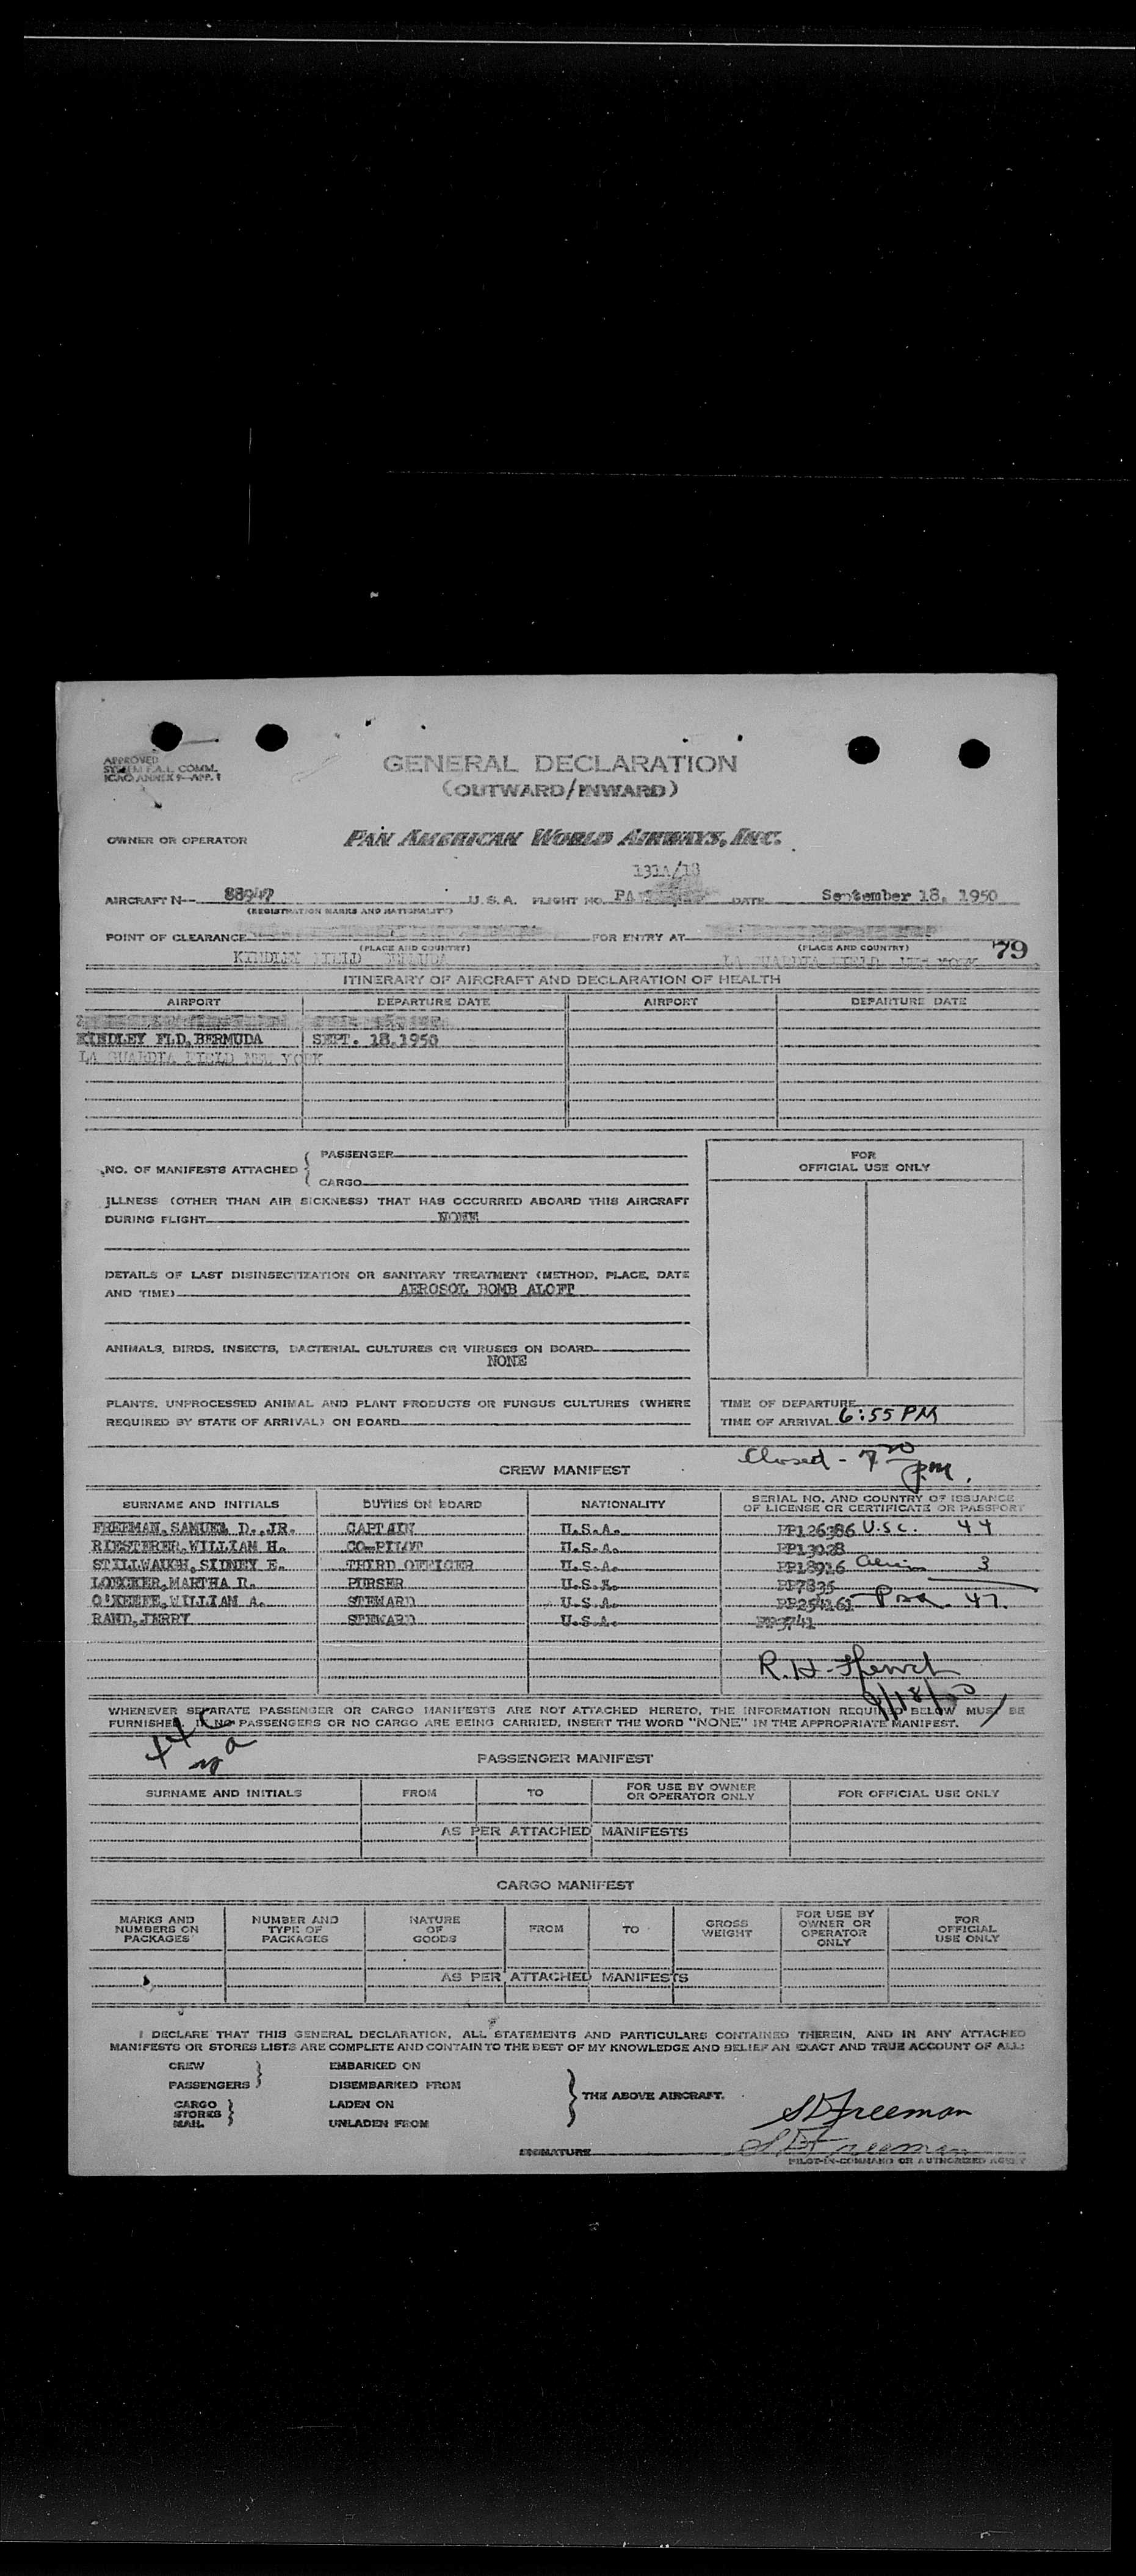 APPROVED
GENERAL DECLARATION
ICAO ANNEX 9-APP. 1
(OUTWARD/INWARD)
OWNER OR OPERATOR PAN AMERICAN WORLD AIRWAYS, INC.
131A/18
AIRCRAFT N-- 88947 U.S.A. FLIGHT NO. PA DATE September 18, 1950
(REGISTRATION MARKS AND NATIONALITY)
POINT OF CLEARANCE FOR ENTRY AT
(PLACE AND COUNTRY) (PLACE AND COUNTRY) 79
KINDLEY FIELD BERMUDA LA GUARDIA FIELD NEW YORK
ITINERARY OF AIRCRAFT AND DECLARATION OF HEALTH
AIRPORT DEPARTURE DATE AIRPORT DEPARTURE DATE
KINDLEY FLD, BERMUDA SEPT. 18,1950
LA GUARDIA FIELD NEW YORK
NO. OF MANIFESTS ATTACHED
PASSENGER
CARGO
FOR
OFFICIAL USE ONLY
ILLNESS (OTHER THAN AIR SICKNESS) THAT HAS OCCURRED ABOARD THIS AIRCRAFT
DURING FLIGHT NONE
DETAILS OF LAST DISINSECTIZATION OR SANITARY TREATMENT (METHOD, PLACE, DATE
AND TIME) AEROSOL BOMB ALOFT
ANIMALS, BIRDS, INSECTS, BACTERIAL CULTURES OR VIRUSES ON BOARD
NONE
PLANTS, UNPROCESSED ANIMAL AND PLANT PRODUCTS OR FUNGUS CULTURES (WHERE
REQUIRED BY STATE OF ARRIVAL) ON BOARD
TIME OF DEPARTURE
TIME OF ARRIVAL 6:55 PM
Closed - 7 20 p.m.
CREW MANIFEST
SURNAME AND INITIALS DUTIES ON BOARD NATIONALITY SERIAL NO. AND COUNTRY OF ISSUANCE
OF LICENSE OR CERTIFICATE OR PASSPORT
FREEMAN, SAMUEL D., JR. CAPTAIN U.S.A. PP126386 U.S.C. 44
RIESTERER, WILLIAM H. CO-PILOT U.S.A. PP13028
STILLWAUGH, SIDNEY E. THIRD OFFICER U.S.A. PP18916 3
LOECKER, MARTHA R. PURSER U.S.A. PP7835
O'KEEFE, WILLIAM A. STEWARD U.S.A. PP254161 47
RAND, JERRY STEWARD U.S.A. PP3741
R. H. French
9/18/50
WHENEVER SEPARATE PASSENGER OR CARGO MANIFESTS ARE NOT ATTACHED HERETO, THE INFORMATION REQUIRED BELOW MUST BE
FURNISHED. IF NO PASSENGERS OR NO CARGO ARE BEING CARRIED, INSERT THE WORD "NONE" IN THE APPROPRIATE MANIFEST.
PASSENGER MANIFEST
SURNAME AND INITIALS FROM TO FOR USE BY OWNER
OR OPERATOR ONLY FOR OFFICIAL USE ONLY
AS PER ATTACHED MANIFESTS
CARGO MANIFEST
MARKS AND
NUMBERS ON
PACKAGES
NUMBER AND
TYPE OF
PACKAGES
NATURE
OF
GOODS
FROM
TO
GROSS
WEIGHT
FOR USE BY
OWNER OR
OPERATOR
ONLY
FOR
OFFICIAL
USE ONLY
AS PER ATTACHED MANIFESTS
I DECLARE THAT THIS GENERAL DECLARATION, ALL STATEMENTS AND PARTICULARS CONTAINED THEREIN, AND IN ANY ATTACHED
MANIFESTS OR STORES LISTS ARE COMPLETE AND CONTAIN TO THE BEST OF MY KNOWLEDGE AND BELIEF AN EXACT AND TRUE ACCOUNT OF ALL:
CREW EMBARKED ON
PASSENGERS DISEMBARKED FROM
CARGO LADEN ON
STORES
MAIL UNLADEN FROM
THE ABOVE AIRCRAFT.
SDFreeman
SDFreeman
SIGNATURE
PILOT-IN-COMMAND OR AUTHORIZED AGENT